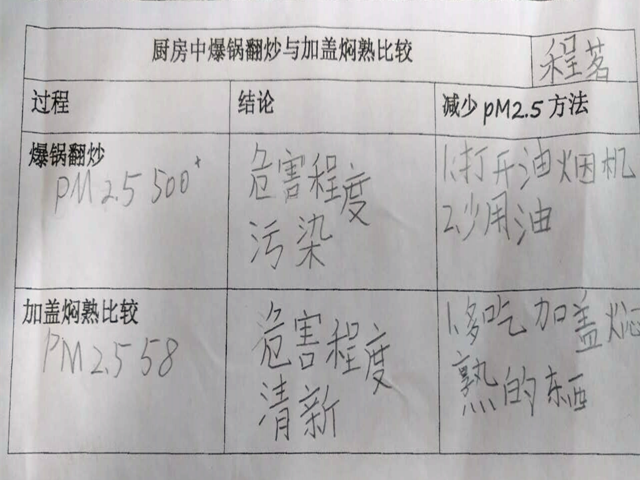 厨房中爆锅翻炒与加盖焖熟比较
程茗
过程
结论
减少PM2.5方法
爆锅翻炒
PM2.5 500+
危害程度
污染
1.打开油烟机
2.少用油
加盖焖熟比较
PM2.5 58
危害程度
清新
1.多吃加盖焖
熟的东西